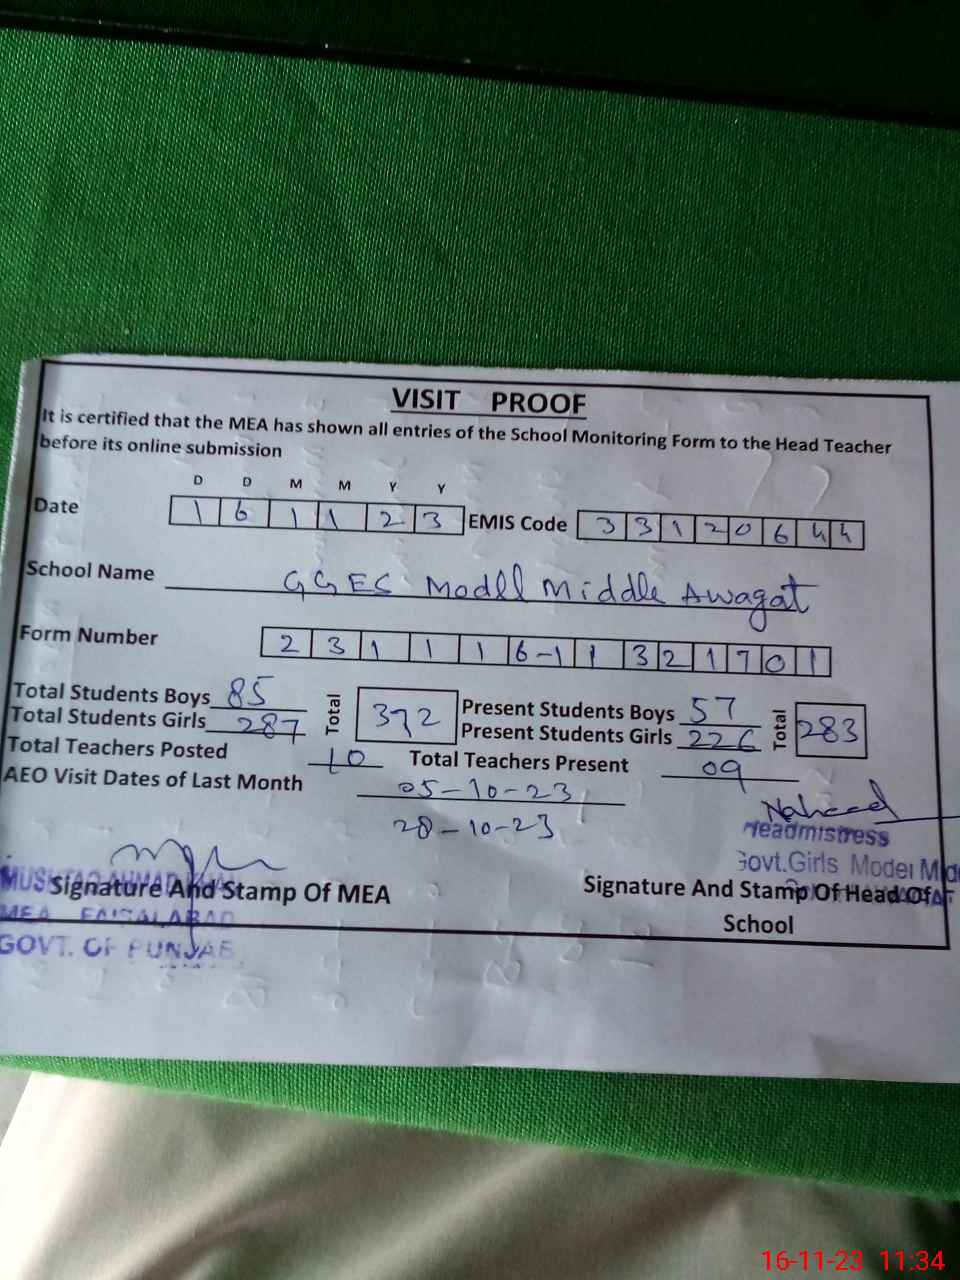 VISIT PROOF
It is certified that the MEA has shown all entries of the School Monitoring Form to the Head Teacher
before its online submission
D D M M Y Y
Date 1 6 1 1 2 3 EMIS Code 3 3 1 2 0 6 4 4
School Name GGES Modll Middle Awagat
Form Number 2 3 1 1 1 6-1 1 3 2 1 7 0 1
Total Students Boys 85 Total 372 Present Students Boys 57 Total 283
Total Students Girls 287 Present Students Girls 226
Total Teachers Posted 10 Total Teachers Present 09
AEO Visit Dates of Last Month 05-10-23
28-10-23
Naheed
Headmistress
Govt.Girls Model
MUSHTAQ AHMAD KHAN
Signature And Stamp Of MEA
Signature And Stamp Of Head Of
School
MEA FAISALABAD
GOVT. OF PUNJAB
16-11-23 11:34